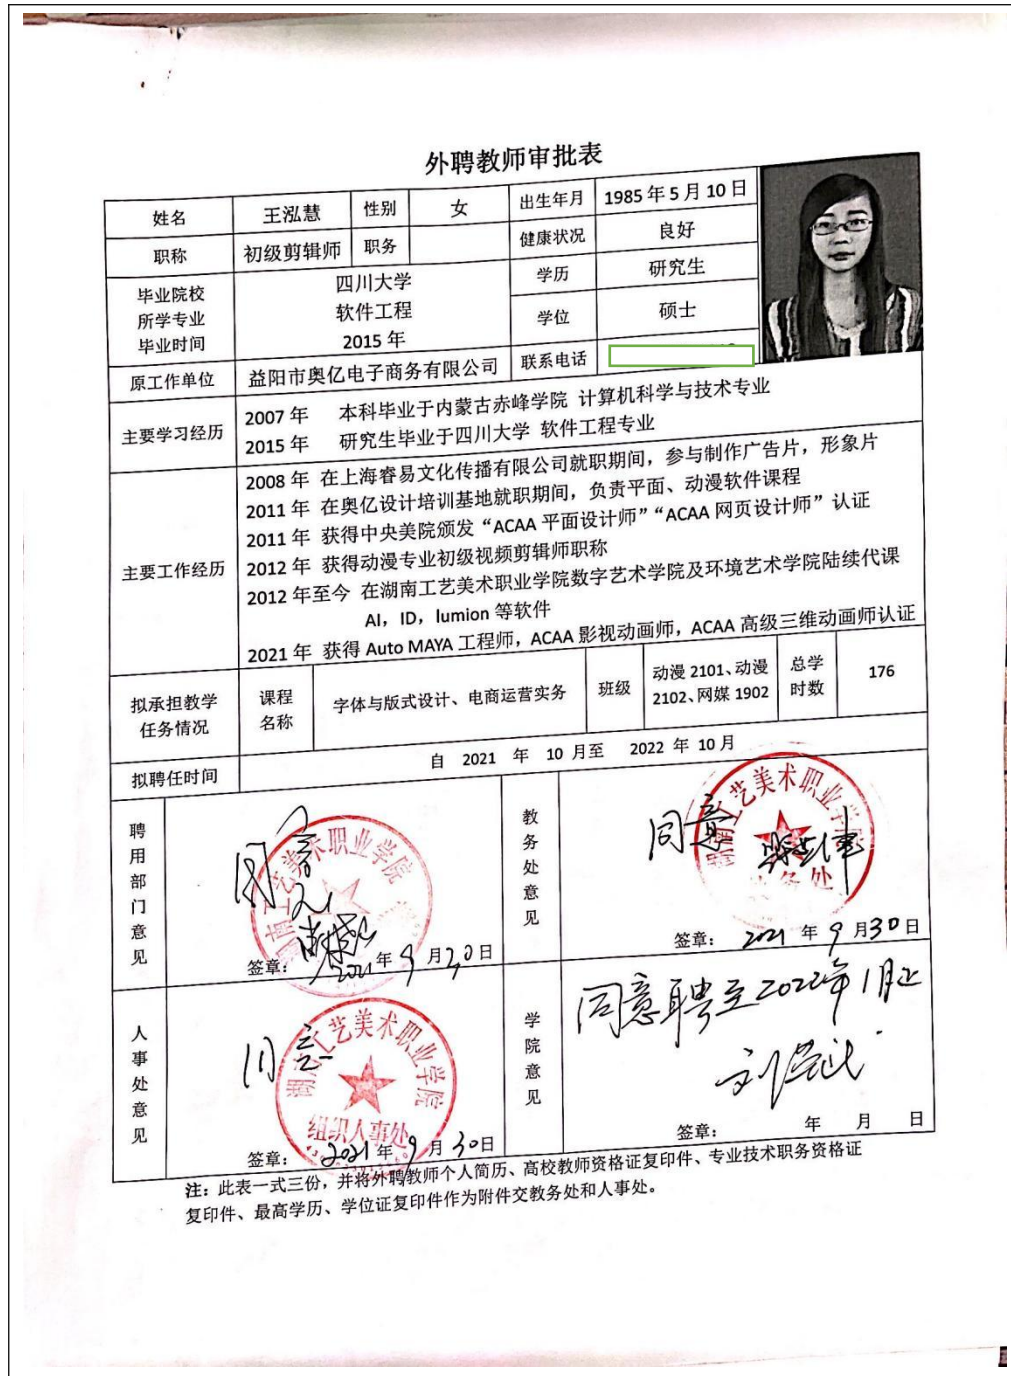 外聘教师审批表
姓名 王泓慧 性别 女 出生年月 1985年5月10日
职称 初级剪辑师 职务 健康状况 良好
毕业院校 所学专业 毕业时间
四川大学
软件工程
2015年
学历 研究生
学位 硕士
原工作单位 益阳市奥亿电子商务有限公司 联系电话
主要学习经历
2007年 本科毕业于内蒙古赤峰学院 计算机科学与技术专业
2015年 研究生毕业于四川大学 软件工程专业
主要工作经历
2008年 在上海睿易文化传播有限公司就职期间，参与制作广告片，形象片
2011年 在奥亿设计培训基地就职期间，负责平面、动漫软件课程
2011年 获得中央美院颁发“ACAA平面设计师”“ACAA网页设计师”认证
2012年 获得动漫专业初级视频剪辑师职称
2012年至今 在湖南工艺美术职业学院数字艺术学院及环境艺术学院陆续代课
AI，ID，lumion等软件
2021年 获得Auto MAYA工程师，ACAA影视动画师，ACAA高级三维动画师认证
拟承担教学任务情况 课程名称 字体与版式设计、电商运营实务 班级 动漫2101、动漫2102、网媒1902 总学时数 176
拟聘任时间 自 2021 年 10 月至 2022 年 10 月
聘用部门意见
同意
湖南工艺美术职业学院
签章： 2021年9月30日
教务处意见
同意
湖南工艺美术职业学院
教务处
签章： 2021年9月30日
人事处意见
同意
湖南工艺美术职业学院
组织人事处
签章： 2021年9月30日
学院意见
同意聘至2022年1月止
签章： 年 月 日
注：此表一式三份，并将外聘教师个人简历、高校教师资格证复印件、专业技术职务资格证
复印件、最高学历、学位证复印件作为附件交教务处和人事处。